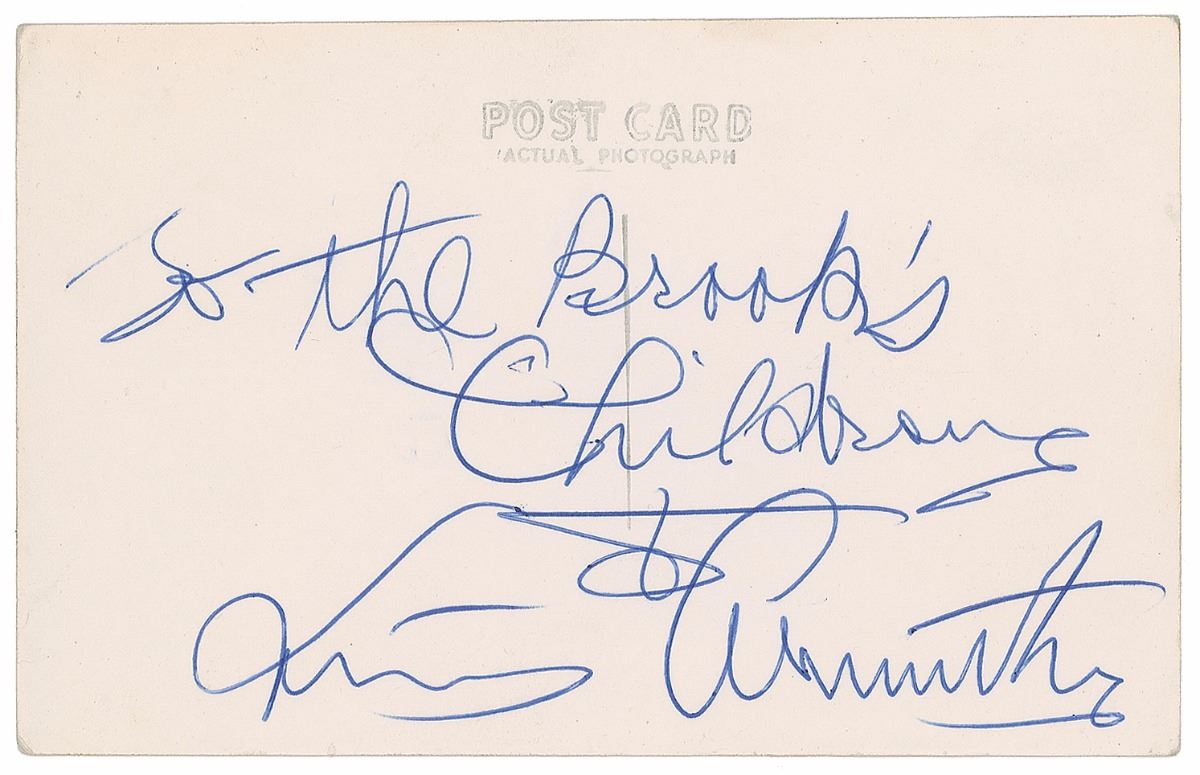 POST CARD
ACTUAL PHOTOGRAPH
To The Brook's
Children